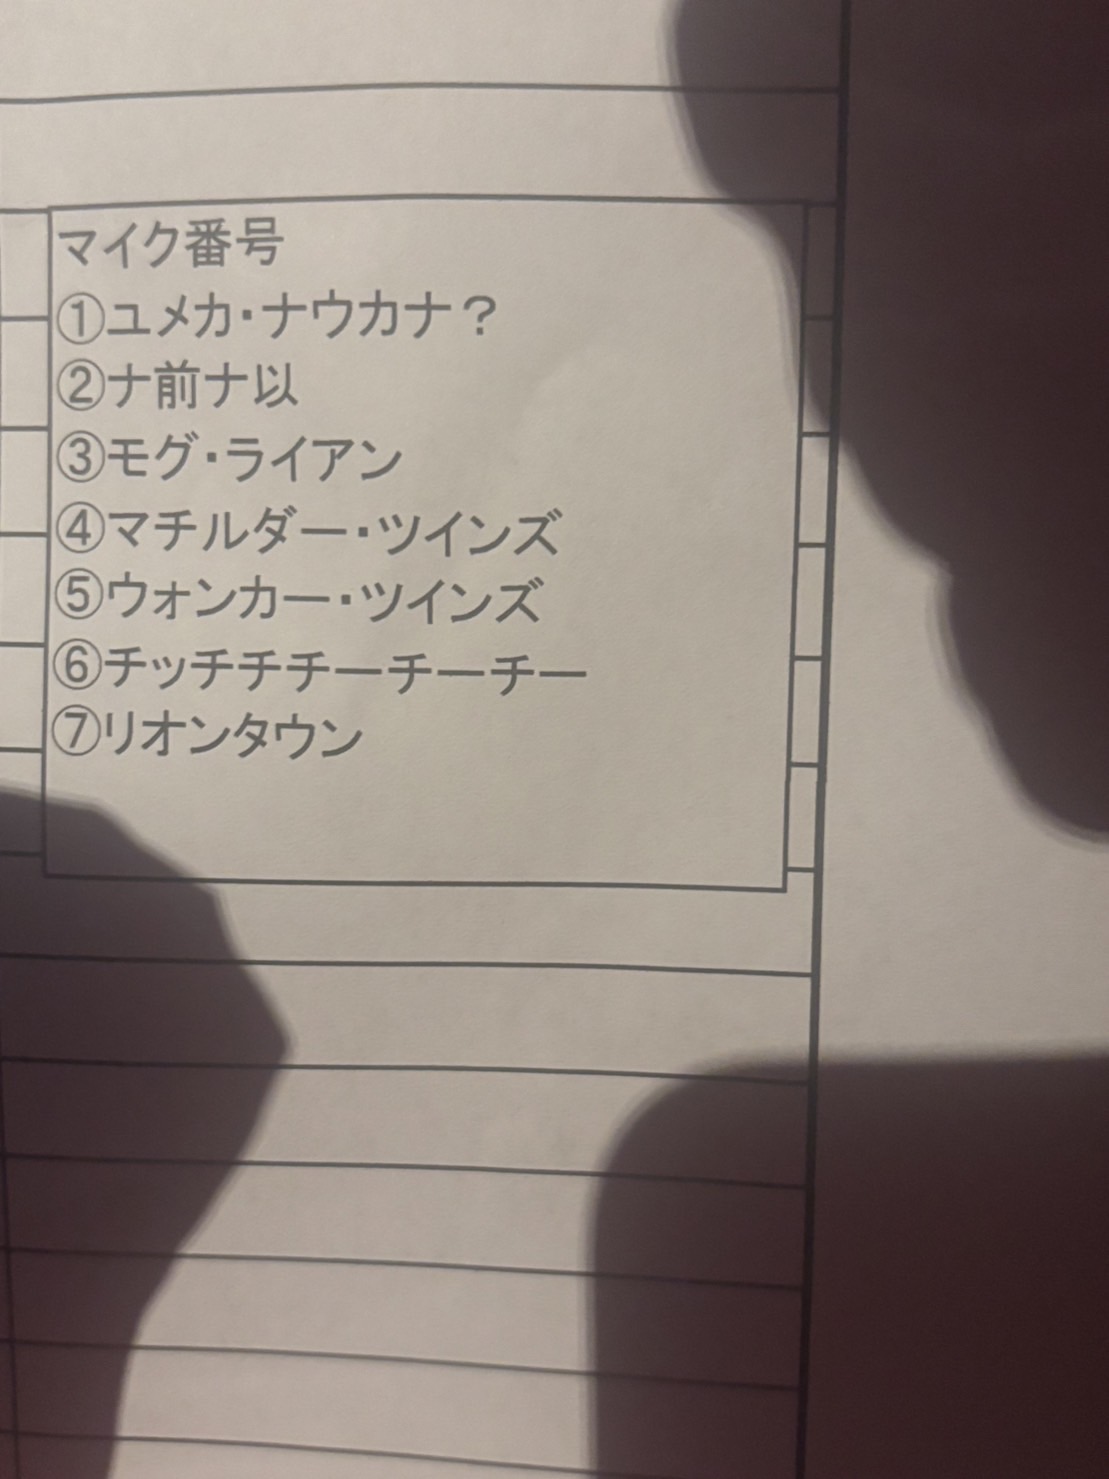 マイク番号
①ユメカ・ナウカナ？
②ナ前ナ以
③モグ・ライアン
④マチルダー・ツインズ
⑤ウォンカー・ツインズ
⑥チッチチチーチーチー
⑦リオンタウン